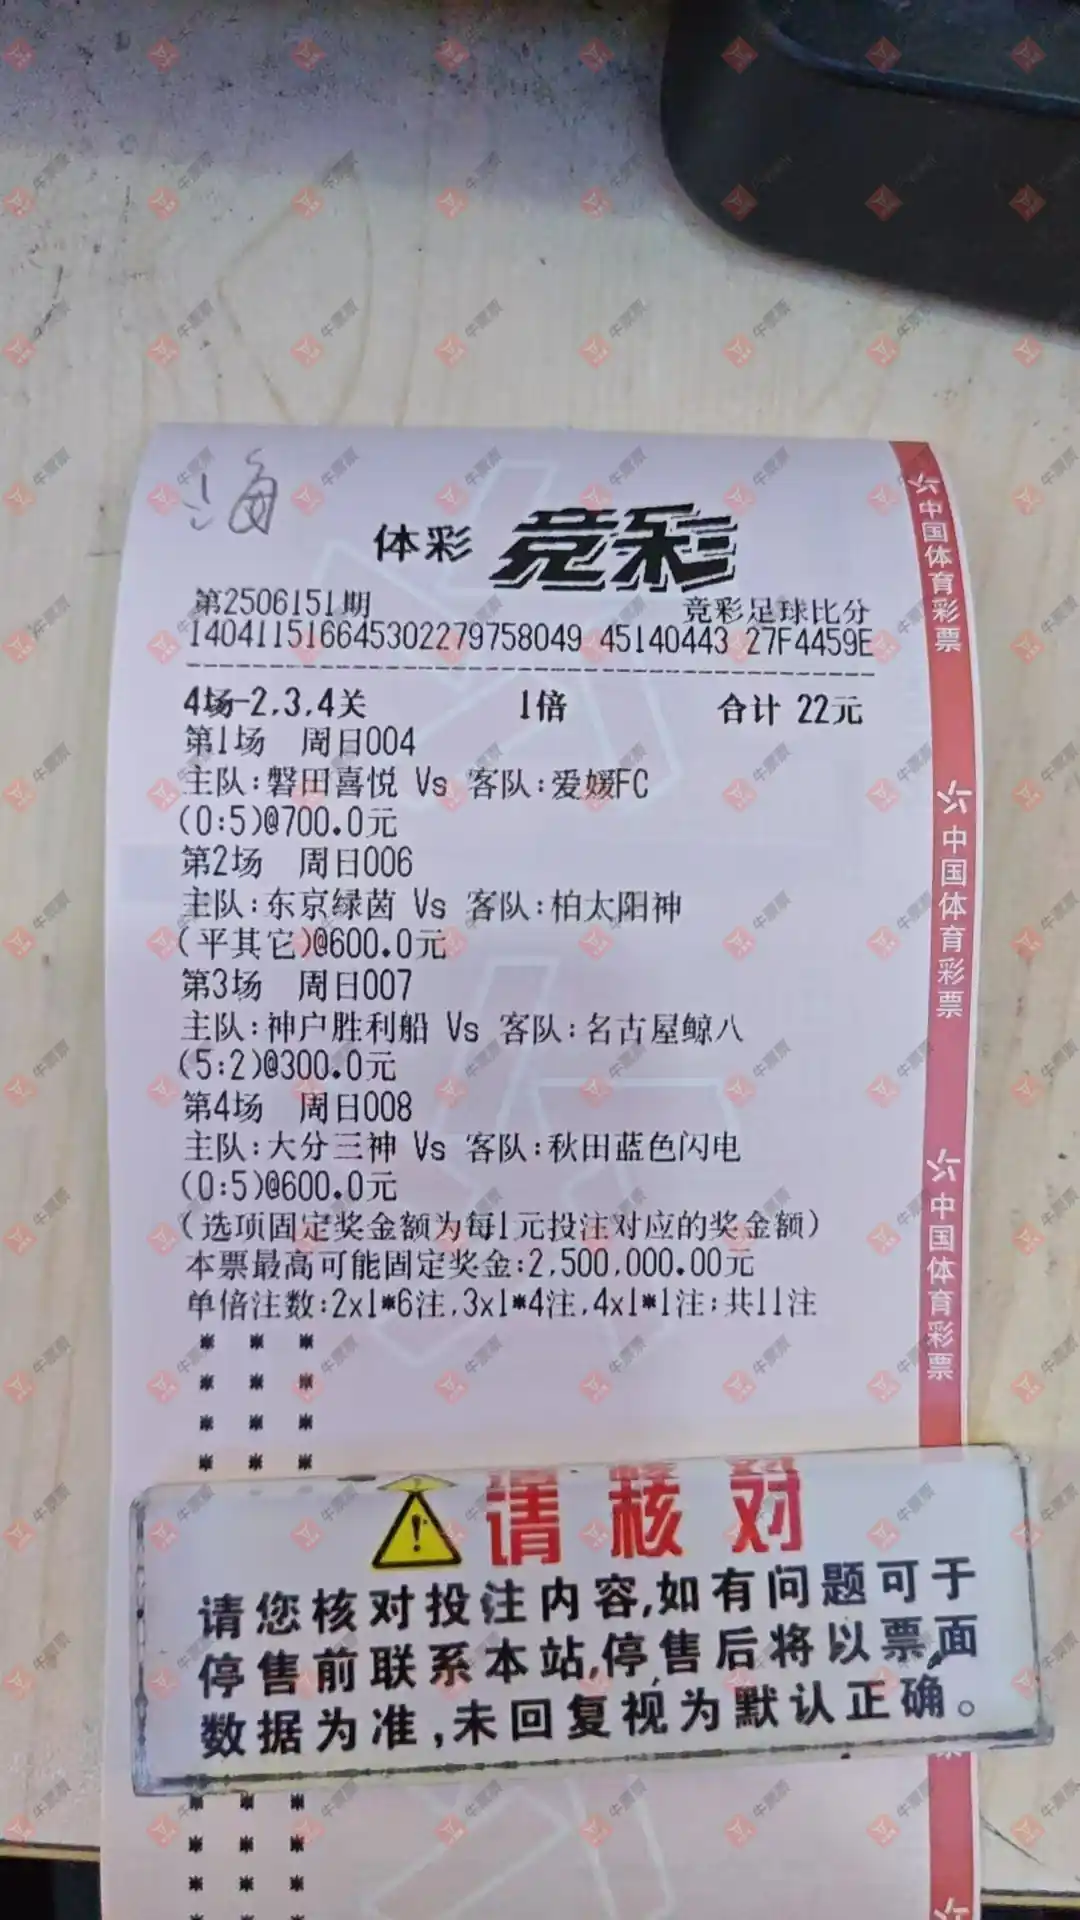 海
体彩 竞彩
第2506151期 竞彩足球比分
140411516645302279758049 45140443 27F4459E
4场-2,3,4关 1倍 合计 22元
第1场 周日004
主队:磐田喜悦 Vs 客队:爱媛FC
(0:5)@700.0元
第2场 周日006
主队:东京绿茵 Vs 客队:柏太阳神
(平其它)@600.0元
第3场 周日007
主队:神户胜利船 Vs 客队:名古屋鲸八
(5:2)@300.0元
第4场 周日008
主队:大分三神 Vs 客队:秋田蓝色闪电
(0:5)@600.0元
(选项固定奖金额为每1元投注对应的奖金额)
本票最高可能固定奖金:2,500,000.00元
单倍注数:2x1*6注,3x1*4注,4x1*1注;共11注
请核对
请您核对投注内容,如有问题可于
停售前联系本站,停售后将以票面
数据为准,未回复视为默认正确。
中国体育彩票
中国体育彩票
中国体育彩票
牛票票